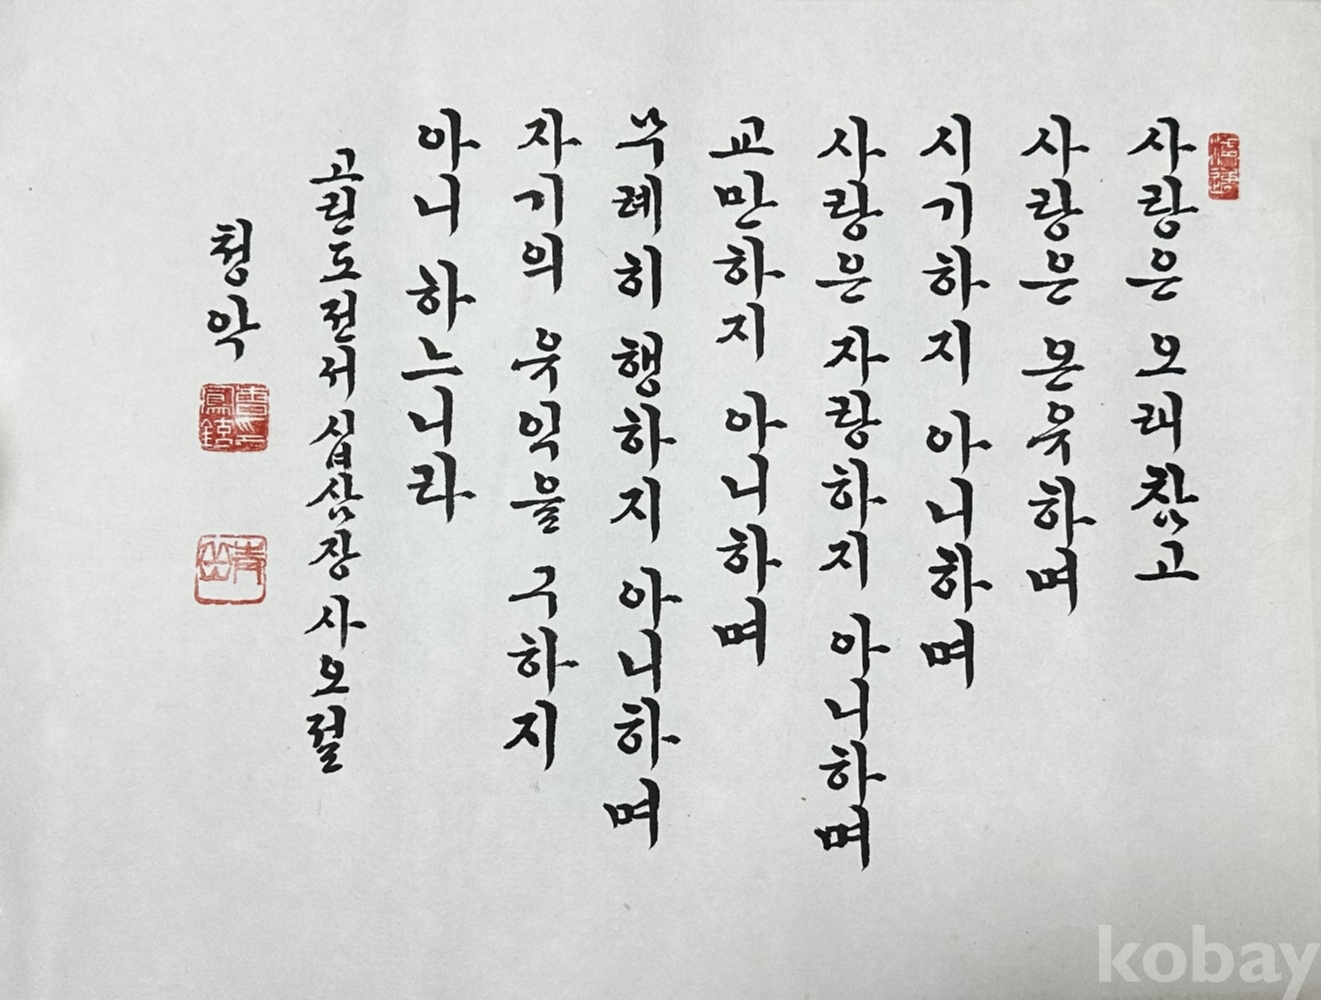 사랑은 오래 참고
사랑은 온유하며
시기하지 아니하며
사랑은 자랑하지 아니하며
교만하지 아니하며
무례히 행하지 아니하며
자기의 유익을 구하지
아니 하느니라
고린도전서 십삼장 사오절
청악
kobay